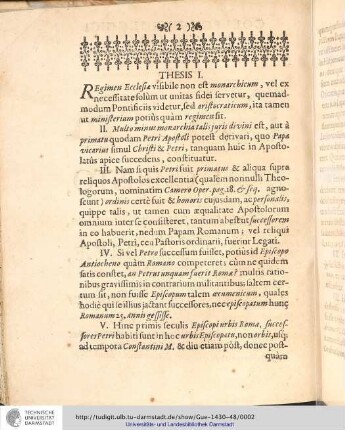 ( 2 )
THESIS I.
REgimen Ecclesiæ visibile non est monarchicum, vel ex
necessitate solùm ut unitas fidei servetur, quemad-
modum Pontificiis videtur, sed aristocraticum, ita tamen
ut ministerium potiùs quàm regimen sit.
II. Multo minus monarchia talis juris divini est, aut à
primatu quodam Petri Apostoli potest derivari, quo Papa
vicarius simul Christi & Petri, tanquam huic in Aposto-
latûs apice succedens, constituatur.
III. Nam si quis Petri fuit primatus & aliqua supra
reliquos Apostolos excellentia (qualem nonnulli Theo-
logorum, nominatim Camero Oper. pag. 18. & seq. agno-
scunt) ordinis certè fuit & honoris cujusdam, ac personalis,
quippe talis, ut tamen cum æqualitate Apostolorum
omnium interse consisteret, tantum abest ut successorem
in eo habuerit, nedum Papam Romanum; vel reliqui
Apostoli, Petri, ceu Pastoris ordinarii, fuerint Legati.
IV. Si vel Petro successum fuisset, potiùs id Episcopo
Antiocheno quàm Romano competeret: cùm ne quidem
satis constet, an Petrus unquam fuerit Romæ? multis ratio-
nibus gravissimis in contrarium militantibus; saltem cer-
tum sit, non fuisse Episcopum talem œcumenicum, quales
hodiè qui se illius jactant successores, nec episcopatum hunc
Romanum 25. annis gessisse.
V. Hinc primis seculis Episcopi urbis Romæ, succes-
sores Petri habiti sunt in hoc urbis Episcopatu, non orbis, usq;
ad tempora Constantini M. & diu etiam pòst, donec post-
quàm
TECHNISCHE
UNIVERSITÄT
DARMSTADT
http://tudigit.ulb.tu-darmstadt.de/show/Gue-1430-48/0002
Universitäts- und Landesbibliothek Darmstadt